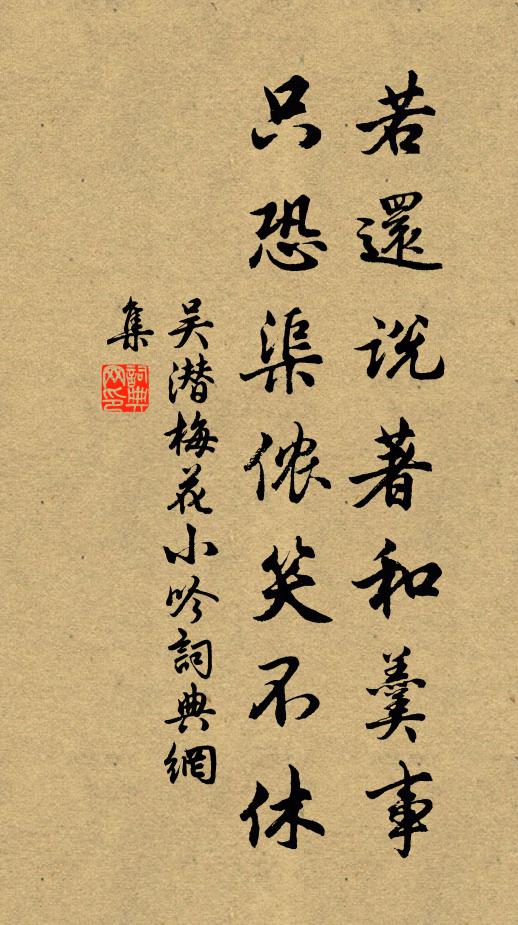 若還说著和羹事
只恐渠侬笑不休
吴潜梅花小吟詞典網
集
詞典网印